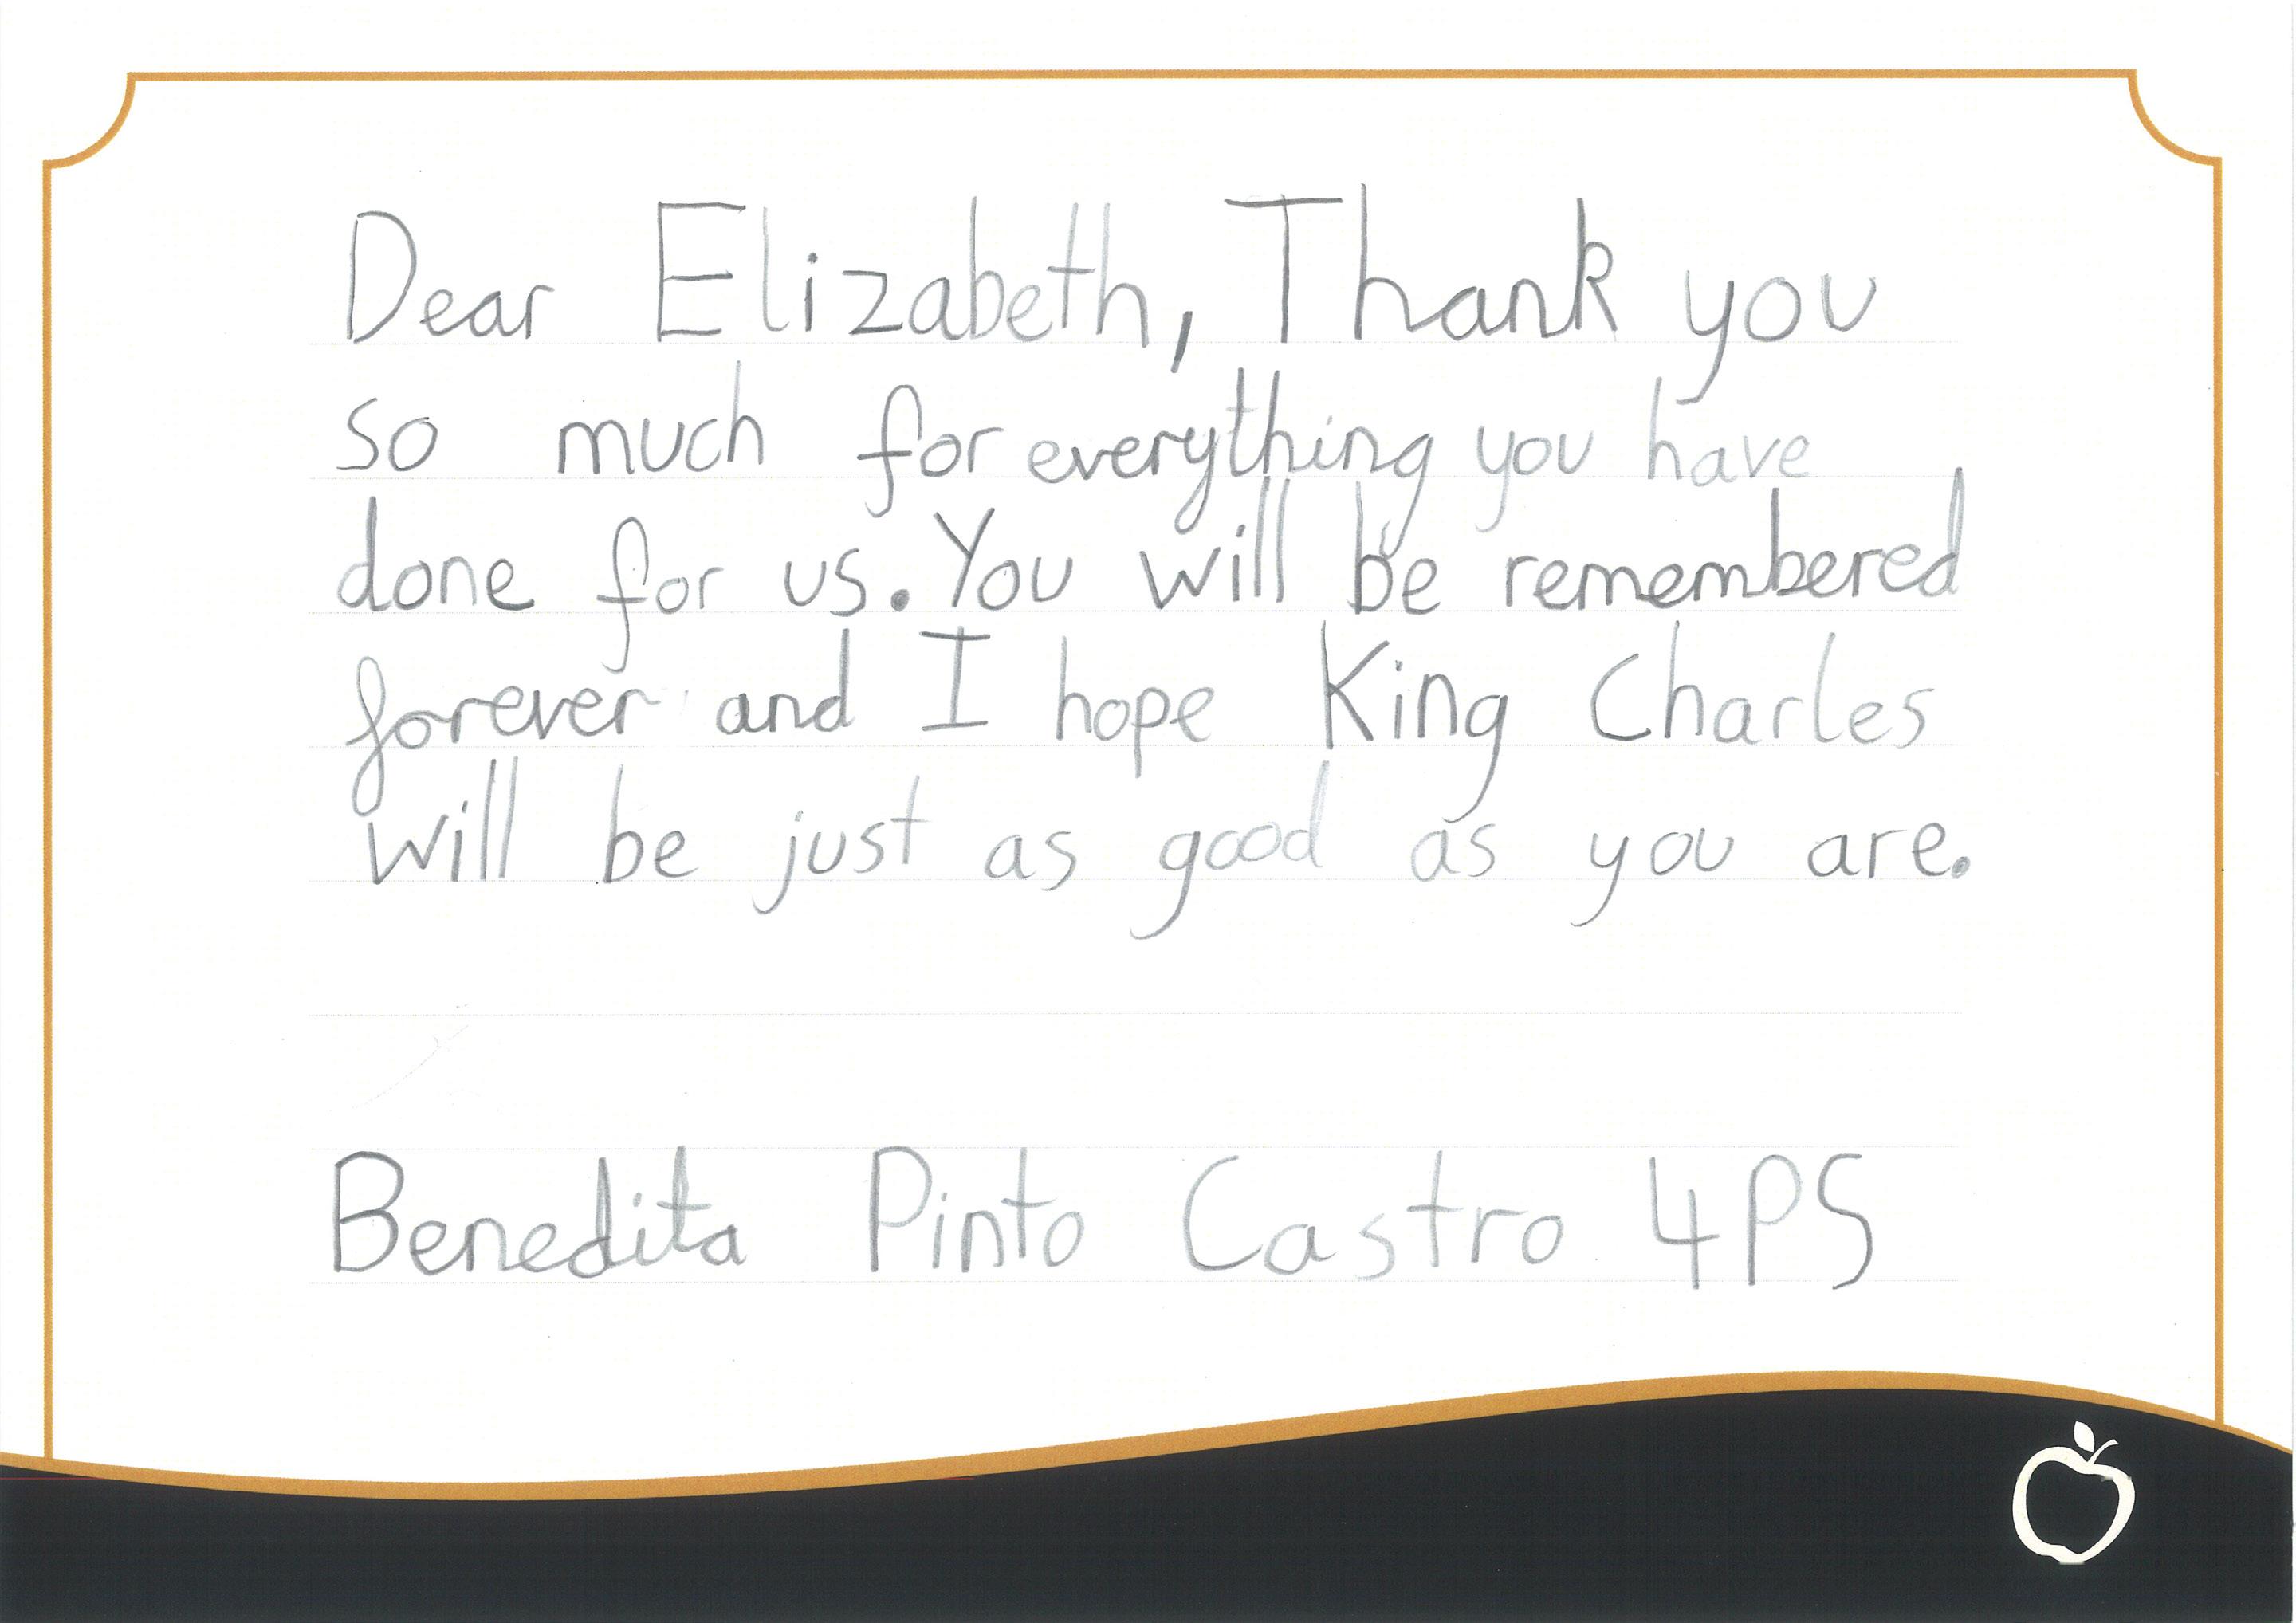 Dear Elizabeth, Thank you
so much for everything you have
done for us. You will be remembered
forever and I hope King Charles
will be just as good as you are.
Benedita Pinto Castro 4PS